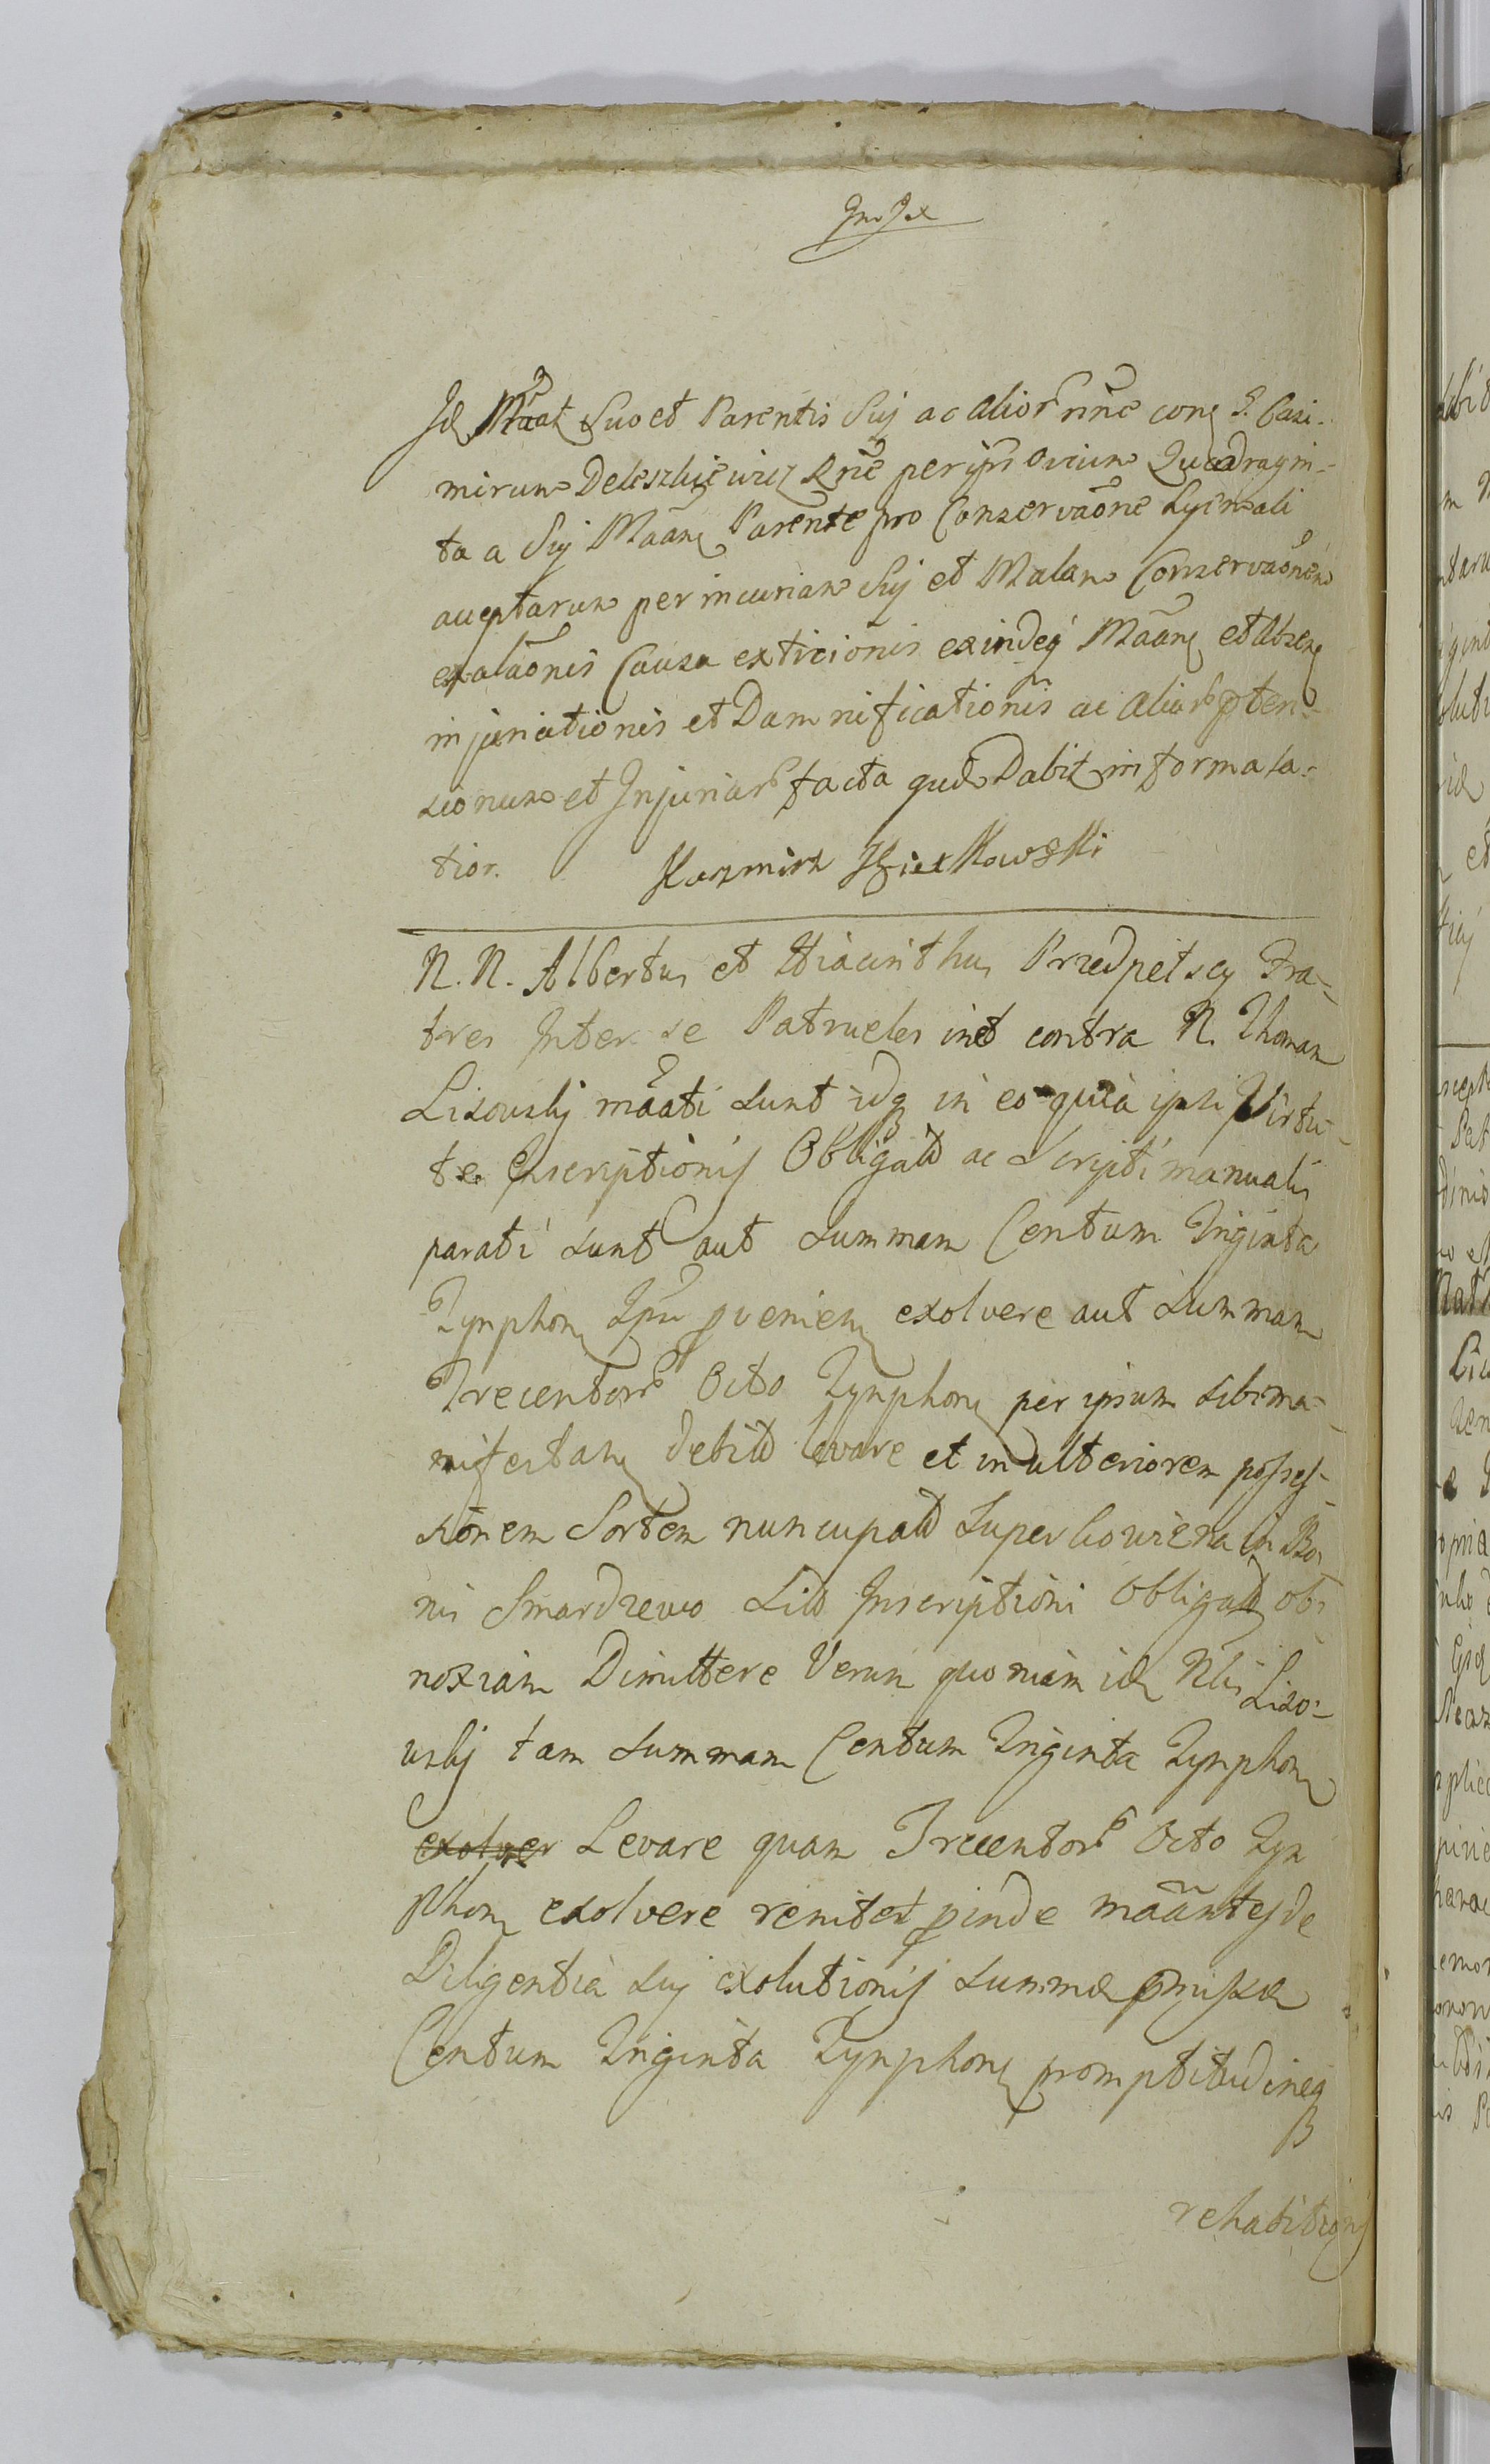 Id Mãat Suo et Parentis Sui ac alior nñe con S. Casi-
mirum Deleszkiewicz Rñe per ipm ovium Quadragin-
ta a Sui Mãan Parente pro Conservaõne hyemali
acceptarum per incuriam Sui et Malam Conservaõnem
causa exindeq Mãan et absen
injuriationis et Damnificationis ac aliar pten-
sionum et Injuriar facta quod Dabit informa la-
tior.
N. N. Albertus et Hiacinthus Przedpelscy Fra-
tres Inter se Patrueles inet contra N. Thomam
Lisowskj mãati sunt idq in eo quia ipsi Virtu-
te Inscriptionis Obligatò ac Scripti manualis
parati sunt aut summam Centum Triginta
Tynphon Ipsi pvenien exolvere aut summam
Trecentorr Octo Tynphon per ipsum sibi ma-
nifestan debitò levare et in ulteriorem posses-
sionem Sortem nuncupatò Superbowizna in Bo-
nis Smardzewo Inscriptioni Obligatò ob-
noxiam Dimittere Verum quoniam id Nlis Liso-
wskj tam summam Centum Triginta Tynphon
exolver Levare quam Trecentorr Octo Tyn
phon exolvere renitet pinde mãantes de
Diligentia sui exolutionis summæ pmissæ
Centum Triginta Tynphon promptitudineq
rehabitionis